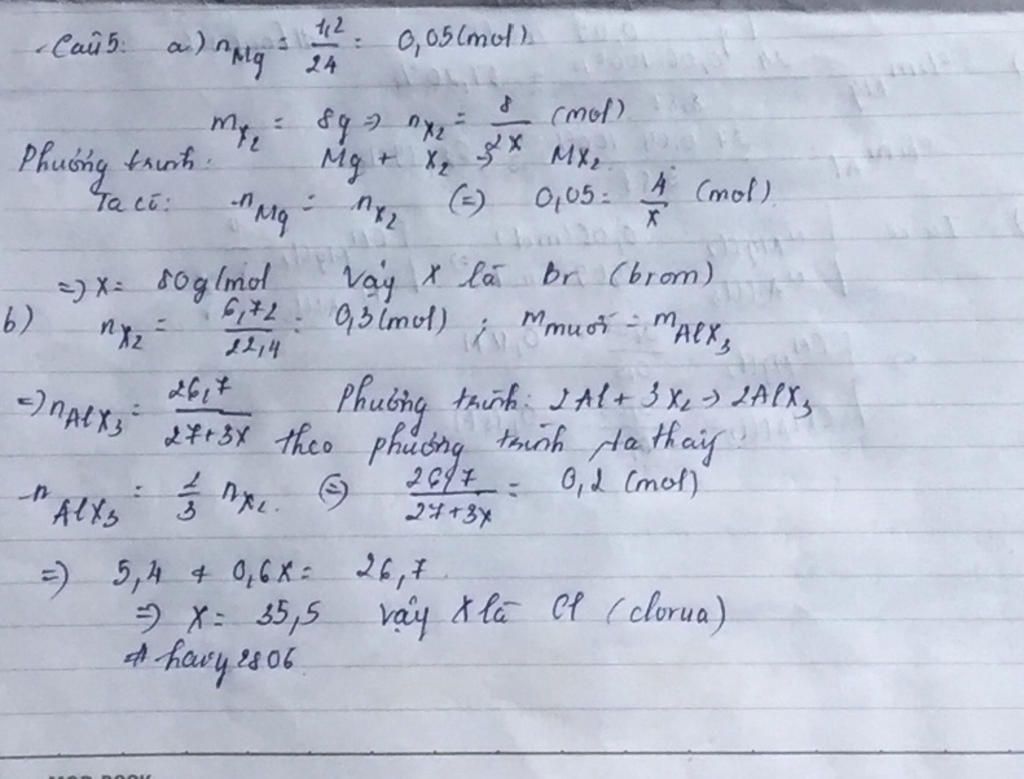 Câu 5: a) nMg = 1,2/24 = 0,05 (mol)
mX2 = 8g => nX2 = 8/2X (mol)
Phương trình: Mg + X2 → MX2
Ta có: nMg = nX2 (=) 0,05 = 4/X (mol)
=> X = 80g/mol Vậy X là Br (brom)
b) nX2 = 6,72/22,4 = 0,3 (mol) ; m muối = mAlX3
=> nAlX3 = 26,7/27+3X Phương trình: 2Al + 3X2 → 2AlX3
theo phương trình ta thấy
nAlX3 = 2/3 nX2 (=) 26,7/27+3X = 0,2 (mol)
=> 5,4 + 0,6X = 26,7
=> X = 35,5 vậy X là Cl (clorua)
# havy2806